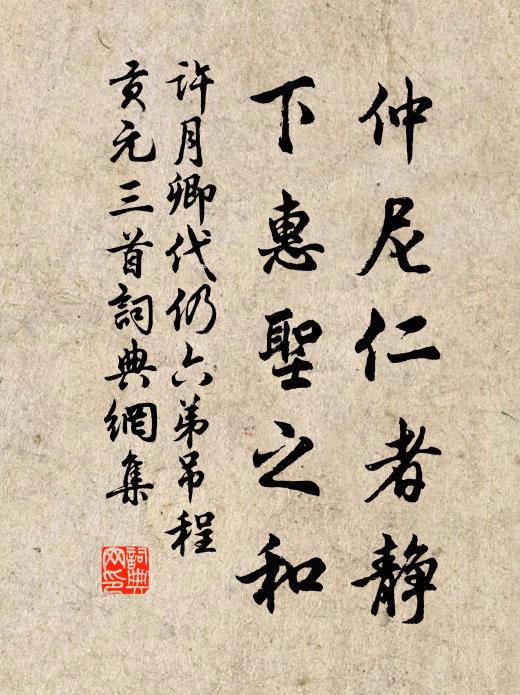 仲尼仁者静
下惠聖之和
許月卿代仍六弟吊程
貢元三首詞典網集
詞典
网印